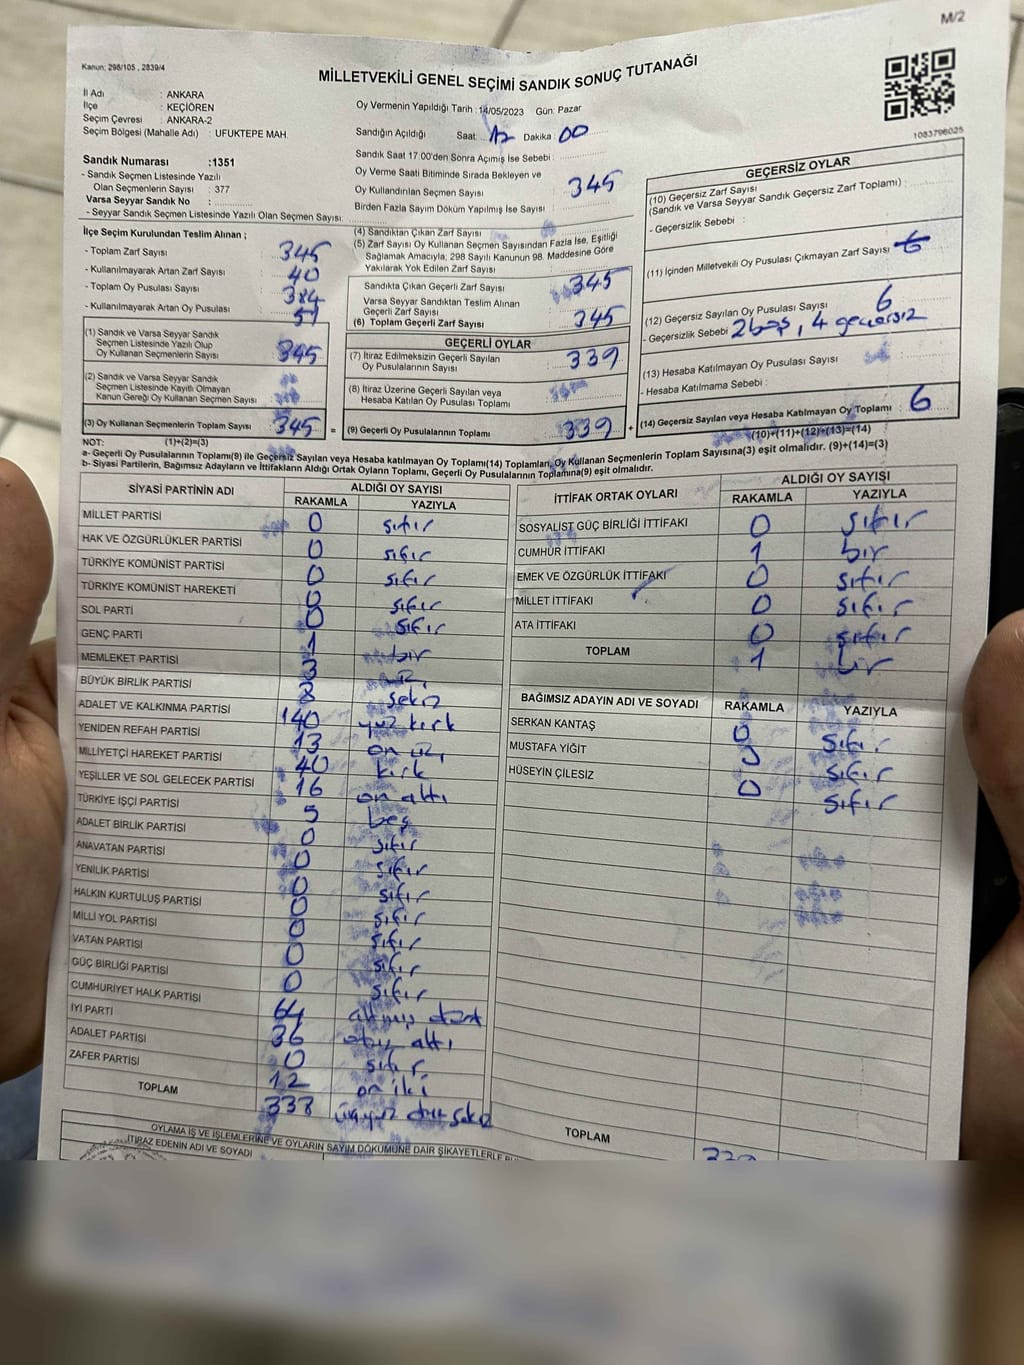 M/2
Kanun: 298/105 , 2839/4
MİLLETVEKİLİ GENEL SEÇİMİ SANDIK SONUÇ TUTANAĞI
İl Adı : ANKARA
İlçe : KEÇİÖREN
Seçim Çevresi : ANKARA-2
Seçim Bölgesi (Mahalle Adı) : UFUKTEPE MAH.
Oy Vermenin Yapıldığı Tarih : 14/05/2023 Gün: Pazar
Sandığın Açıldığı Saat: Dakika: 00
Sandık Saat 17.00'den Sonra Açımış İse Sebebi :
Oy Verme Saati Bitiminde Sırada Bekleyen ve
Oy Kullandırılan Seçmen Sayısı 345
Birden Fazla Sayım Döküm Yapılmış İse Sayısı
1083796025
Sandık Numarası :1351
- Sandık Seçmen Listesinde Yazılı
Olan Seçmenlerin Sayısı : 377
Varsa Seyyar Sandık No :
- Seyyar Sandık Seçmen Listesinde Yazılı Olan Seçmen Sayısı:
İlçe Seçim Kurulundan Teslim Alınan ;
- Toplam Zarf Sayısı : 345
- Kullanılmayarak Artan Zarf Sayısı : 40
- Toplam Oy Pusulası Sayısı : 384
- Kullanılmayarak Artan Oy Pusulası :
(1) Sandık ve Varsa Seyyar Sandık
Seçmen Listesinde Yazılı Olup
Oy Kullanan Seçmenlerin Sayısı : 345
(2) Sandık ve Varsa Seyyar Sandık
Seçmen Listesinde Kayıtlı Olmayan
Kanun Gereği Oy Kullanan Seçmen Sayısı :
(3) Oy Kullanan Seçmenlerin Toplam Sayısı : 345 =
(4) Sandıktan Çıkan Zarf Sayısı
(5) Zarf Sayısı Oy Kullanan Seçmen Sayısından Fazla İse, Eşitliği
Sağlamak Amacıyla, 298 Sayılı Kanunun 98. Maddesine Göre
Yakılarak Yok Edilen Zarf Sayısı
Sandıkta Çıkan Geçerli Zarf Sayısı : 345
Varsa Seyyar Sandıktan Teslim Alınan
Geçerli Zarf Sayısı
(6) Toplam Geçerli Zarf Sayısı : 345
GEÇERLİ OYLAR
(7) İtiraz Edilmeksizin Geçerli Sayılan
Oy Pusulalarının Sayısı : 339
(8) İtiraz Üzerine Geçerli Sayılan veya
Hesaba Katılan Oy Pusulası Toplamı
(9) Geçerli Oy Pusulalarının Toplamı : 339 +
GEÇERSİZ OYLAR
(10) Geçersiz Zarf Sayısı
(Sandık ve Varsa Seyyar Sandık Geçersiz Zarf Toplamı) :
- Geçersizlik Sebebi :
(11) İçinden Milletvekili Oy Pusulası Çıkmayan Zarf Sayısı
(12) Geçersiz Sayılan Oy Pusulası Sayısı : 6
- Geçersizlik Sebebi 2 boş, 4 geçersiz
(13) Hesaba Katılmayan Oy Pusulası Sayısı
- Hesaba Katılmama Sebebi :
(14) Geçersiz Sayılan veya Hesaba Katılmayan Oy Toplamı : 6
(10)+(11)+(12)+(13)=(14)
NOT: (1)+(2)=(3)
a- Geçerli Oy Pusulalarının Toplamı(9) ile Geçersiz Sayılan veya Hesaba katılmayan Oy Toplamı(14) Toplamları, Oy Kullanan Seçmenlerin Toplam Sayısına(3) eşit olmalıdır. (9)+(14)=(3)
b- Siyasi Partilerin, Bağımsız Adayların ve İttifakların Aldığı Ortak Oyların Toplamı, Geçerli Oy Pusulalarının Toplamına(9) eşit olmalıdır.
SİYASİ PARTİNİN ADI ALDIĞI OY SAYISI
RAKAMLA YAZIYLA
MİLLET PARTİSİ 0 sıfır
HAK VE ÖZGÜRLÜKLER PARTİSİ 0 sıfır
TÜRKİYE KOMÜNİST PARTİSİ 0 sıfır
TÜRKİYE KOMÜNİST HAREKETİ 0 sıfır
SOL PARTİ 0 sıfır
GENÇ PARTİ 1 bir
MEMLEKET PARTİSİ 3
BÜYÜK BİRLİK PARTİSİ 8 sekiz
ADALET VE KALKINMA PARTİSİ 140 yüz kırk
YENİDEN REFAH PARTİSİ 13 on üç
MİLLİYETÇİ HAREKET PARTİSİ 40 kırk
YEŞİLLER VE SOL GELECEK PARTİSİ 16 on altı
TÜRKİYE İŞÇİ PARTİSİ 5 beş
ADALET BİRLİK PARTİSİ 0 sıfır
ANAVATAN PARTİSİ 0 sıfır
YENİLİK PARTİSİ 0 sıfır
HALKIN KURTULUŞ PARTİSİ 0 sıfır
MİLLİ YOL PARTİSİ 0 sıfır
VATAN PARTİSİ 0 sıfır
GÜÇ BİRLİĞİ PARTİSİ 0 sıfır
CUMHURİYET HALK PARTİSİ 64 altmış dört
İYİ PARTİ 36 otuz altı
ADALET PARTİSİ 0 sıfır
ZAFER PARTİSİ 12 on iki
TOPLAM 338 üçyüz otuz sekiz
İTTİFAK ORTAK OYLARI ALDIĞI OY SAYISI
RAKAMLA YAZIYLA
SOSYALİST GÜÇ BİRLİĞİ İTTİFAKI 0 sıfır
CUMHUR İTTİFAKI 1 bir
EMEK VE ÖZGÜRLÜK İTTİFAKI 0 sıfır
MİLLET İTTİFAKI 0 sıfır
ATA İTTİFAKI 0 sıfır
TOPLAM 1 bir
BAĞIMSIZ ADAYIN ADI VE SOYADI RAKAMLA YAZIYLA
SERKAN KANTAŞ 0 sıfır
MUSTAFA YİĞİT sıfır
HÜSEYİN ÇİLESİZ 0 sıfır
TOPLAM
OYLAMA İŞ VE İŞLEMLERİNE VE OYLARIN SAYIM DÖKÜMÜNE DAİR ŞİKAYETLERLE
İTİRAZ EDENİN ADI VE SOYADI